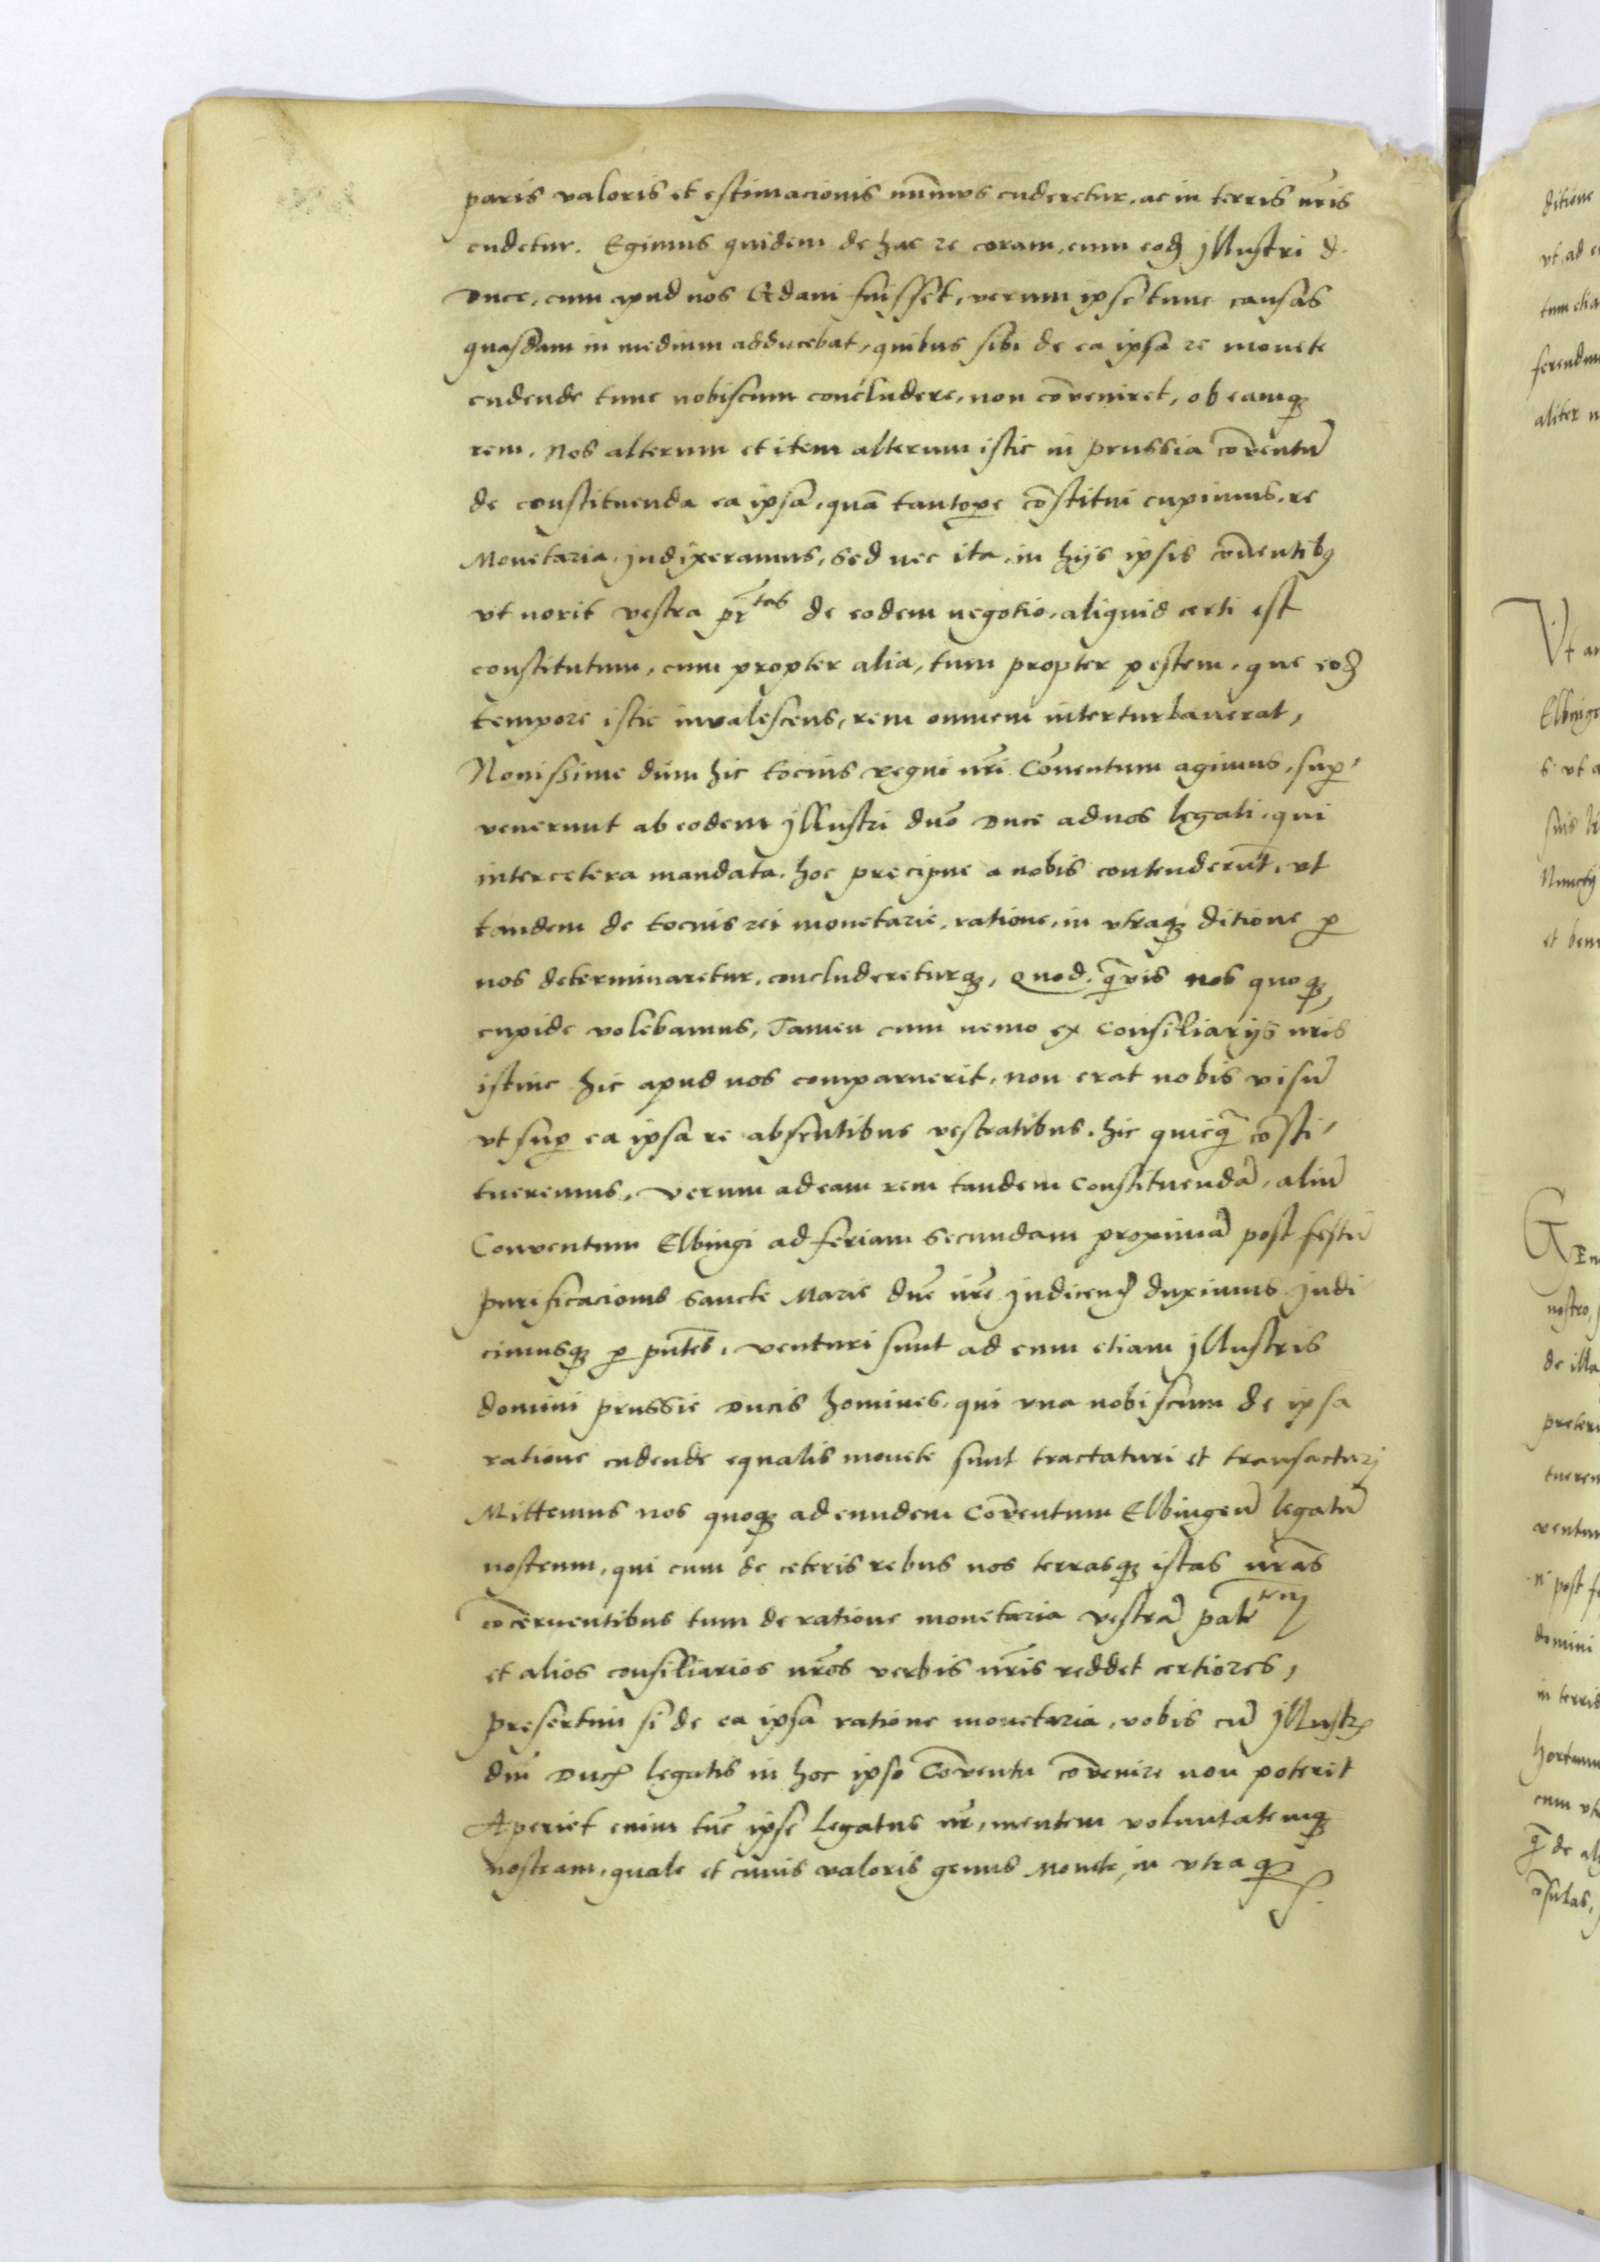 paris valoris et estimacionis num̄us cuderetur, ac in terris nr̄is
cudetur. Egimus quidem de hac re coram, cum eod̄ Illustri d.
Duce, cum apud nos Gdani fuisset, verum ipse tunc causas
quasdam in medium adducebat, quibus sibi de ea ipsa re monete
cudende tunc nobiscum concludere, non cōveniret, ob eamq̄
rem, Nos alterum et item alterum istic in prussia cōventū
de constituenda ea ipsa, quā tantop̄e cōstitui cupimus, re
Monetaria, Indixeramus, Sed nec ita, in hijs ipsis cōventibꝫ
vt norit vestra pr̄tas de eodem negotio, aliquid certi est
constitutum, cum propter alia, tum propter pestem, que eod̄
tempore istic invalescens, rem omnem interturbauerat,
Nouissime dum hic tocius regni nr̄i Cōnentum agimus, sup̄
venerunt ab eodem Illustri dnō Duce ad nos legati, qui
inter cetera mandata, hoc precipue a nobis contenderūt, vt
tandem de tocius rei monetarie, ratione, in vtraqꝫ ditione ꝑ
nos determinaretur, concludereturqꝫ, Quod, q̄vis nos quoqꝫ
cupide volebamus, Tamen cum nemo ex Consiliarijs nr̄is
istinc hic apud nos comparuerit, non erat nobis visū
vt sup̄ ea ipsa re absentibus vestratibus, hic quicq̄ cōsti,
tueremus, verum ad eam rem tandem Constituendā, aliū
Conventum Elbingi ad feriam secundam proximā post festū
purificacionis Sancte Marie dn̄e nr̄e Indicend̄ duximus Indi
cimusqꝫ ꝑ pn̄tes, venturi sunt ad eum etiam Illustris
domini prussie Ducis homines, qui vna nobiscum de ipsa
ratione cudende equalis monete sunt tractaturi et transacturj
Mittemus nos quoqꝫ ad eundem Cōventum Elbingeū legatū
nostrum, qui cum de ceteris rebus nos terrasqꝫ istas nr̄as
cōcernentibus tum de ratione monetaria vestrā patꝛtem
et alios consiliarios nr̄os verbis nr̄is reddet certiores,
presertim si de ea ipsa ratione monetaria, vobis cū Illustꝛ
dni Ducꝭ legatis in hoc ipso Cōventu cōvenire non poterit
Aperiet enim tūc ipse legatus nr̄, mentem voluntatemqꝫ
nostram, quale et cuius valoris genus Monete, in vtraqꝫ